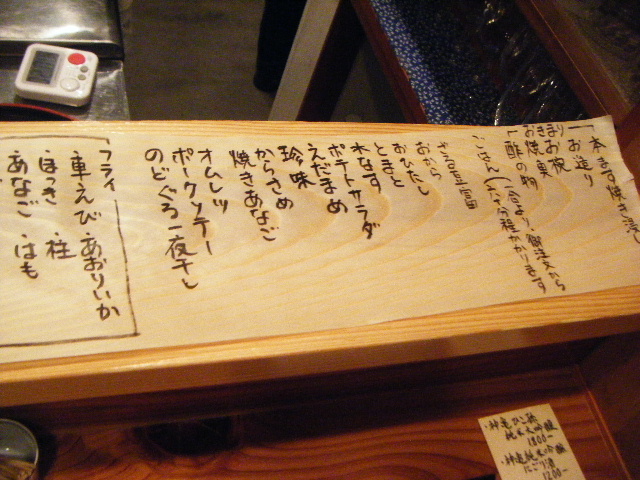 本ます焼き浸し
「お造り
お椀
お焼き
「酢の物
ごはん(一合より、御注文から
六十分程かかります
ざる豆腐
おから
おひたし
とまと
水なす
ポテトサラダ
えだまめ
珍味
からさめ
焼きあなご
オムレツ
ポークソテー
のどぐろ一夜干し
フライ
車えび あおりいか
ほっき 柱
あなご はも
純米大吟醸
1800-
純米吟醸
にごり酒
1200-